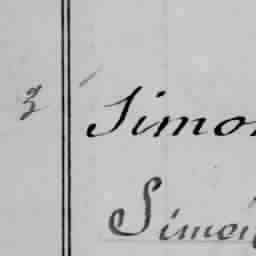 3 Simon
Simon